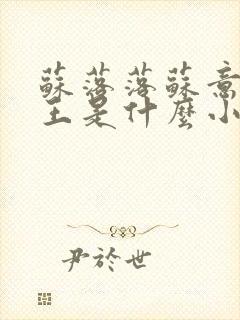 蘇落落蘇意
王是什麼小
尹於世